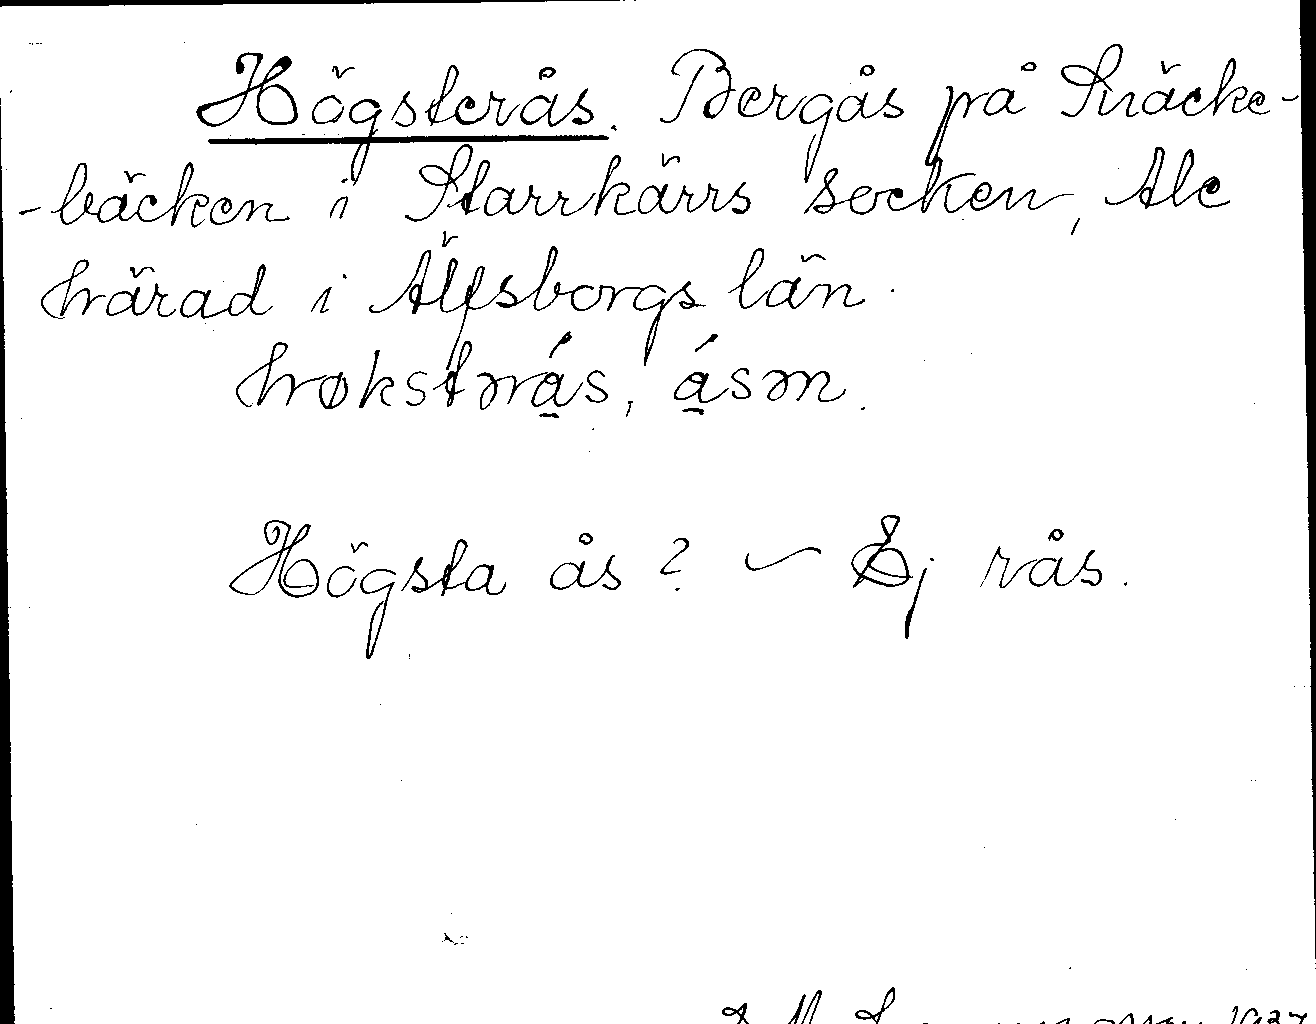 Högsterås. Bergås på Snäcke-
-bäcken i Starrkärrs socken, Ale
härad i Älfsborgs län.
høkstərá̱s, á̱sən.
Högsta ås? ~ Ej rås.
1937